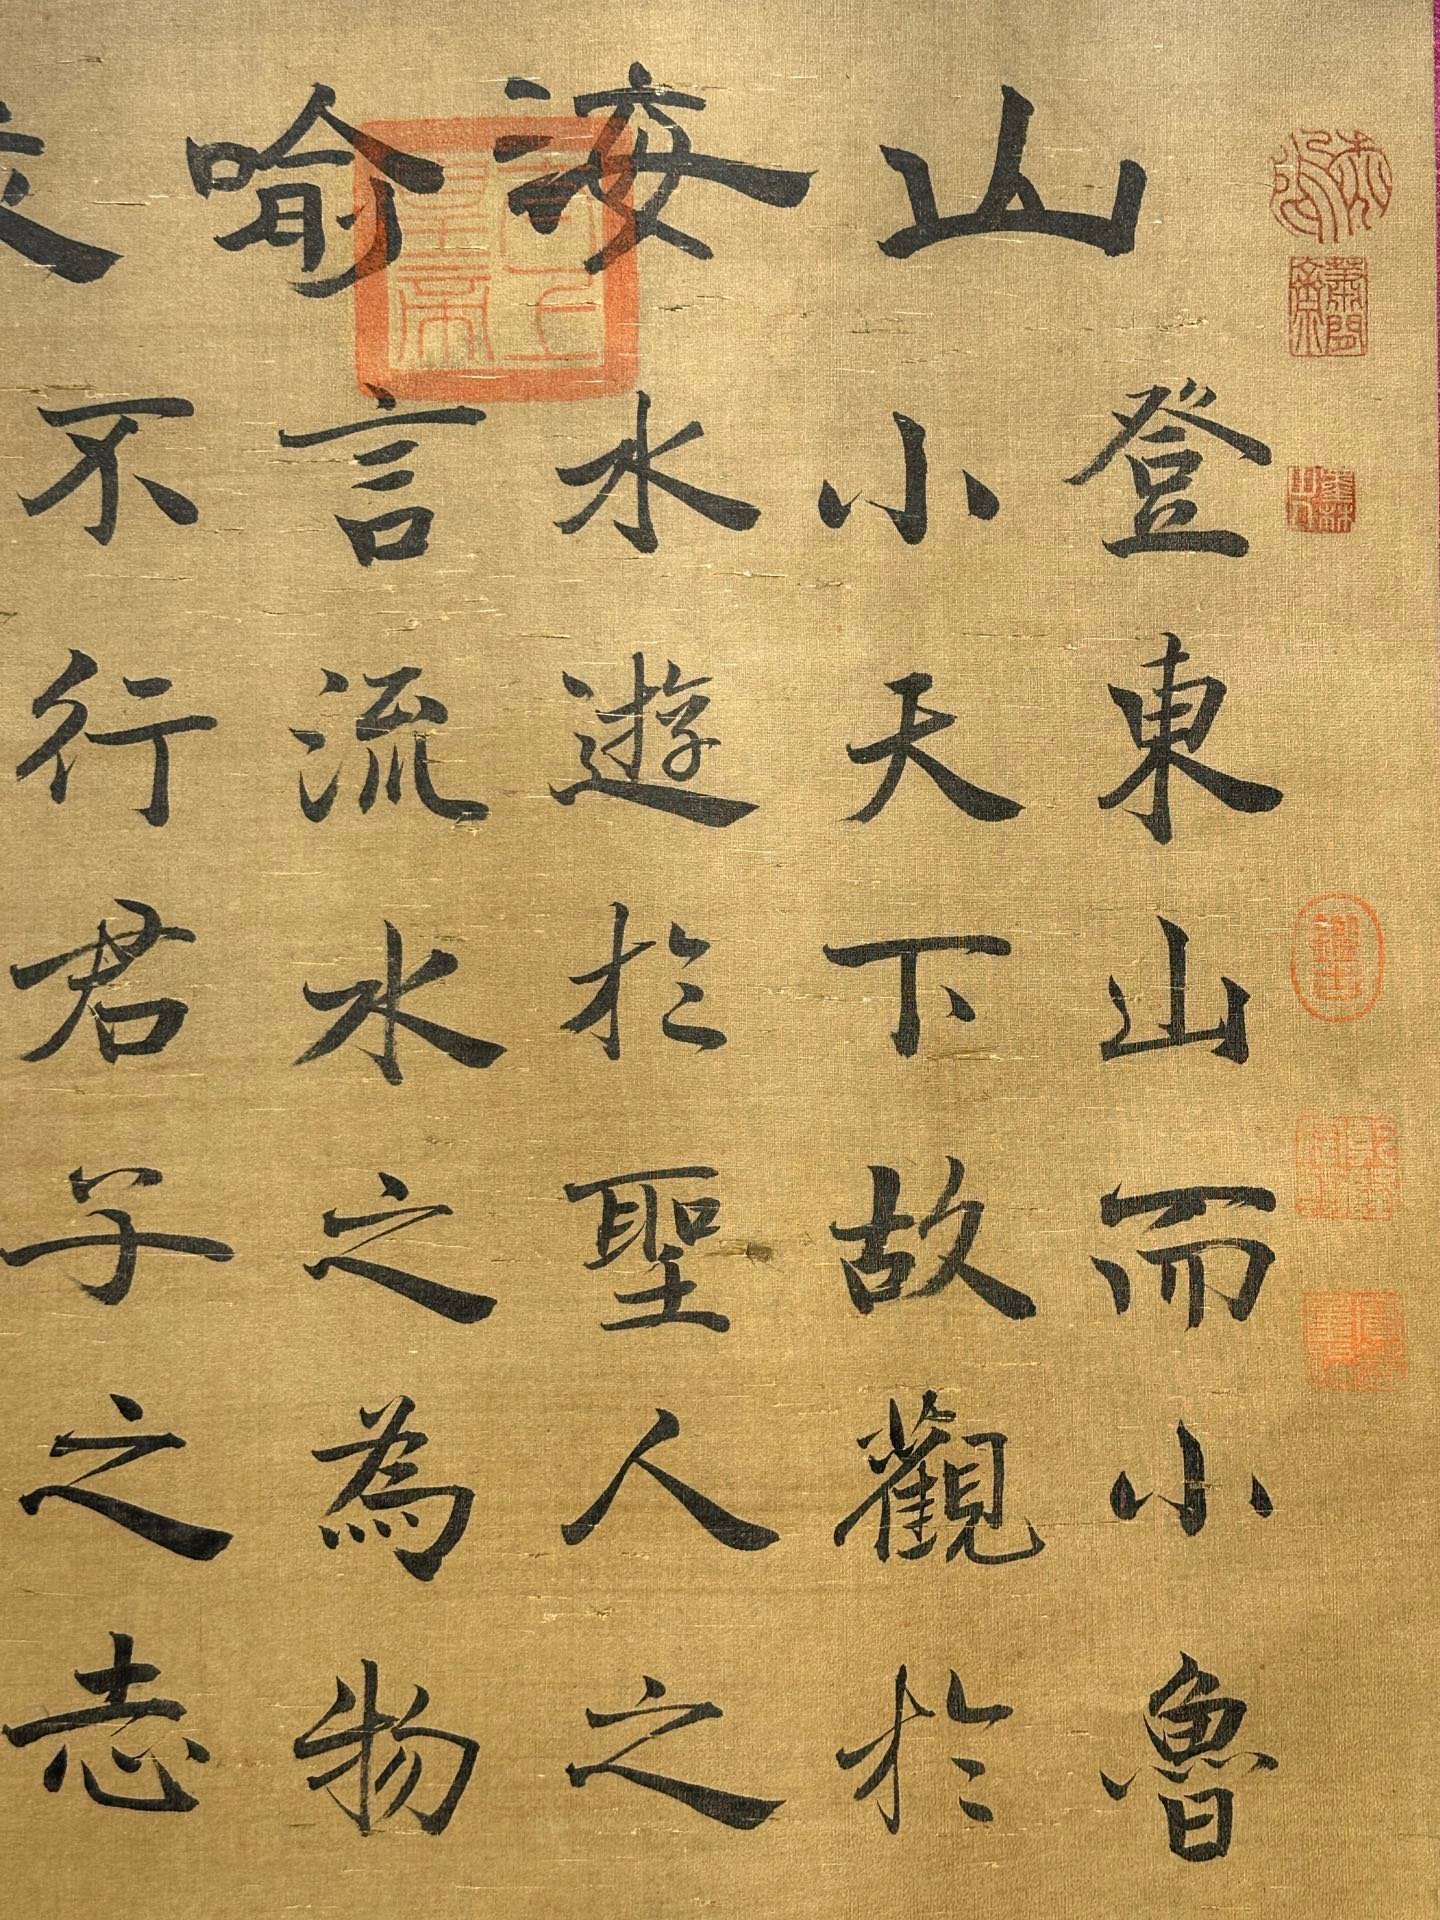 山海喻
登東山而小魯
小天下故觀於
水遊於聖人之
言流水之為物
不行君子之志
太上皇帝